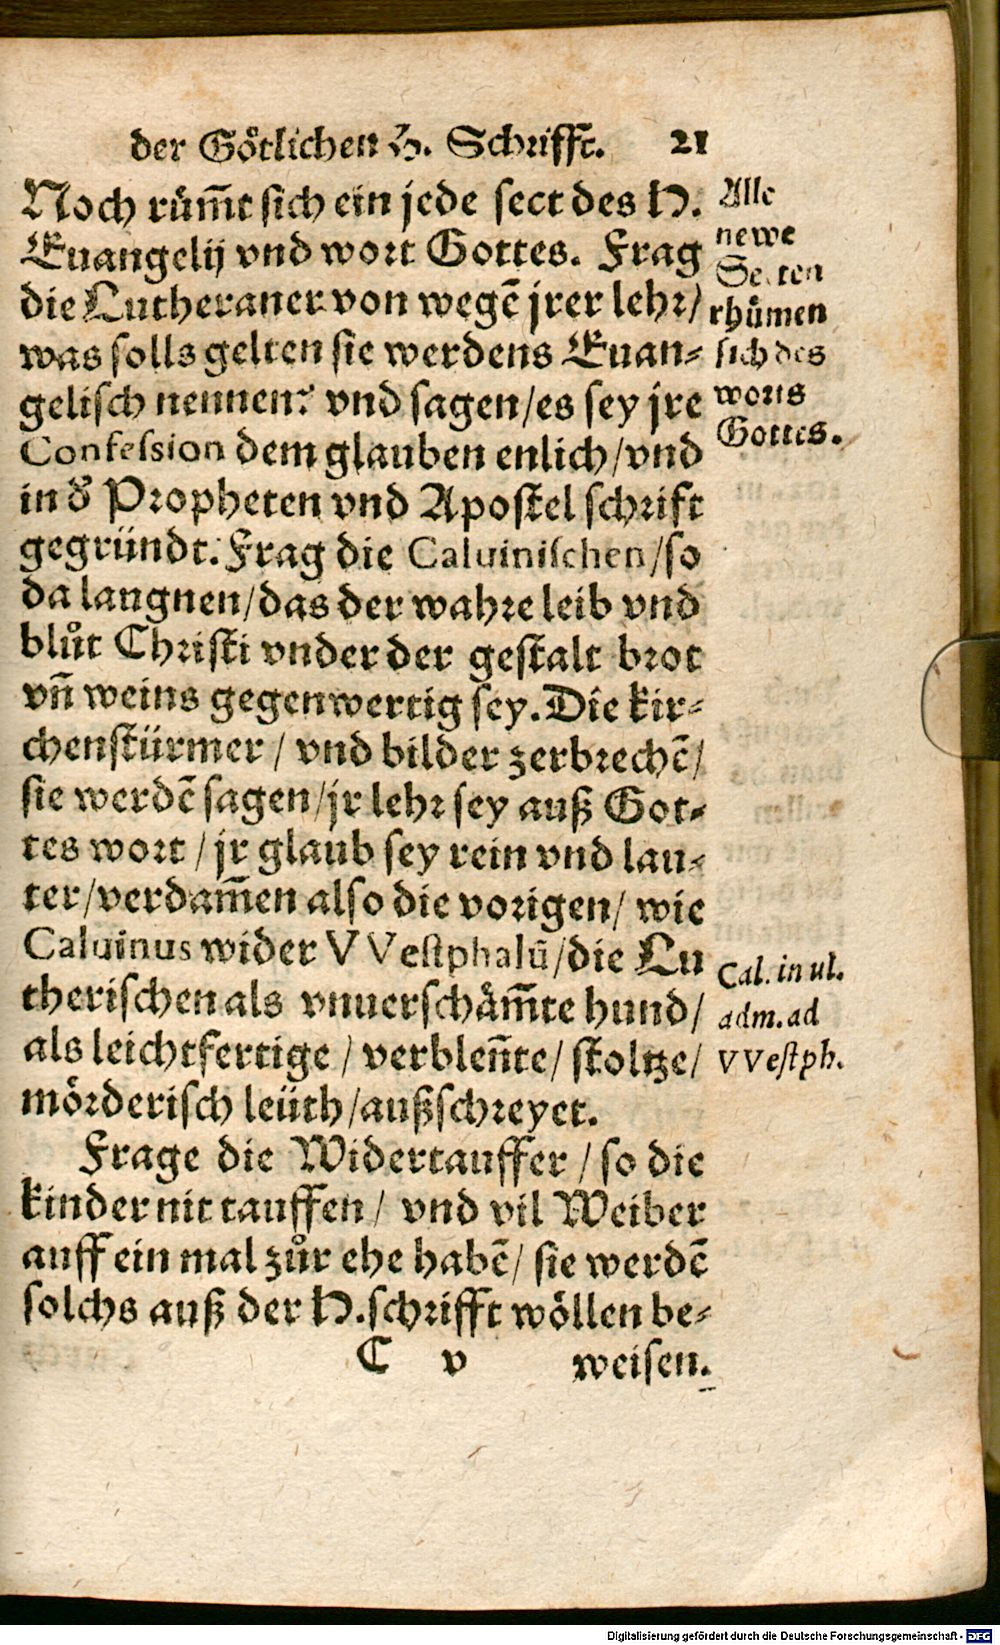 der Götlichen H. Schrifft. 21
Noch rüm̃t sich ein jede sect des H.
Euangelij vnd wort Gottes. Frag
die Lutheraner von wegẽ jrer lehr/
was solls gelten sie werdens Euan-
gelisch nennen? vnd sagen/es sey jre
Confession dem glauben enlich/vnd
in d̕ Propheten vnd Apostel schrift
gegründt. Frag die Caluinischen/so
da langnen/das der wahre leib vnd
blůt Christi vnder der gestalt brot
vñ weins gegenwertig sey. Die kir-
chenstürmer / vnd bilder zerbrechẽ/
sie werdẽ sagen/jr lehr sey auß Got-
tes wort / jr glaub sey rein vnd lau-
ter/verdam̃en also die vorigen/ wie
Caluinus wider VVestphalũ/die Lu
therischen als vnuerschäm̃te hund/
als leichtfertige / verbleñte/ stoltze/
mörderisch leüth/außschreyet.
Frage die Widertauffer / so die
kinder nit tauffen / vnd vil Weiber
auff ein mal zůr ehe habẽ/ sie werdẽ
solchs auß der H.schrifft wöllen be-
C v weisen.
Alle
newe
Secten
rhümen
sich des
worts
Gottes.
Cal. in ul.
adm. ad
VVestph.
Digitalisierung gefördert durch die Deutsche Forschungsgemeinschaft - DFG